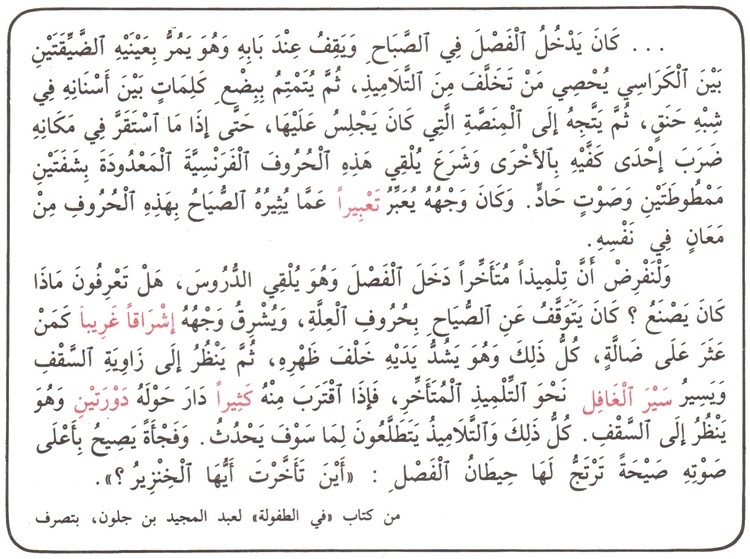 ... كَانَ يَدْخُلُ ٱلْفَصْلَ فِي ٱلصَّبَاحِ وَيَقِفُ عِنْدَ بَابِهِ وَهُوَ يَمُرُّ بِعَيْنَيْهِ ٱلضَّيِّقَتَيْنِ
بَيْنَ ٱلْكَرَاسِي يُحْصِي مَنْ تَخَلَّفَ مِنَ ٱلتَّلَامِيذِ، ثُمَّ يُتَمْتِمُ بِبِضْعِ كَلِمَاتٍ بَيْنَ أَسْنَانِهِ فِي
شِبْهِ حَنَقٍ، ثُمَّ يَتَّجِهُ إِلَى ٱلْمَنَصَّةِ الَّتِي كَانَ يَجْلِسُ عَلَيْهَا، حَتَّى إِذَا مَا ٱسْتَقَرَّ فِي مَكَانِهِ
ضَرَبَ إِحْدَى كَفَّيْهِ بِٱلأُخْرَى وَشَرَعَ يُلْقِي هَذِهِ ٱلْحُرُوفَ ٱلْفَرَنْسِيَّةَ ٱلْمَعْدُودَةَ بِشَفَتَيْنِ
مَمْطُوطَتَيْنِ وَصَوْتٍ حَادٍّ. وَكَانَ وَجْهُهُ يُعَبِّرُ تَعْبِيراً عَمَّا يُثِيرُهُ ٱلصِّيَاحُ بِهَذِهِ ٱلْحُرُوفِ مِنْ
مَعَانٍ فِي نَفْسِهِ.
وَلْنَفْرِضْ أَنَّ تِلْمِيذاً مُتَأَخِّراً دَخَلَ ٱلْفَصْلَ وَهُوَ يُلْقِي ٱلدُّرُوسَ، هَلْ تَعْرِفُونَ مَاذَا
كَانَ يَصْنَعُ ؟ كَانَ يَتَوَقَّفُ عَنِ ٱلصِّيَاحِ بِحُرُوفِ ٱلْعِلَّةِ، وَيُشْرِقُ وَجْهُهُ إِشْرَاقاً غَرِيباً كَمَنْ
عَثَرَ عَلَى ضَالَّةٍ، كُلُّ ذَلِكَ وَهُوَ يَشُدُّ يَدَيْهِ خَلْفَ ظَهْرِهِ، ثُمَّ يَنْظُرُ إِلَى زَاوِيَةِ ٱلسَّقْفِ
وَيَسِيرُ سَيْرَ ٱلْغَافِلِ نَحْوَ ٱلتِّلْمِيذِ ٱلْمُتَأَخِّرِ، فَإِذَا ٱقْتَرَبَ مِنْهُ كَثِيراً دَارَ حَوْلَهُ دَوْرَتَيْنِ وَهُوَ
يَنْظُرُ إِلَى ٱلسَّقْفِ. كُلُّ ذَلِكَ وَٱلتَّلَامِيذُ يَتَطَلَّعُونَ لِمَا سَوْفَ يَحْدُثُ. وَفَجْأَةً يَصِيحُ بِأَعْلَى
صَوْتِهِ صَيْحَةً تَرْتَجُّ لَهَا حِيطَانُ ٱلْفَصْلِ : «أَيْنَ تَأَخَّرْتَ أَيُّهَا ٱلْخِنْزِيرُ ؟».
من كتاب «في الطفولة» لعبد المجيد بن جلون، بتصرف